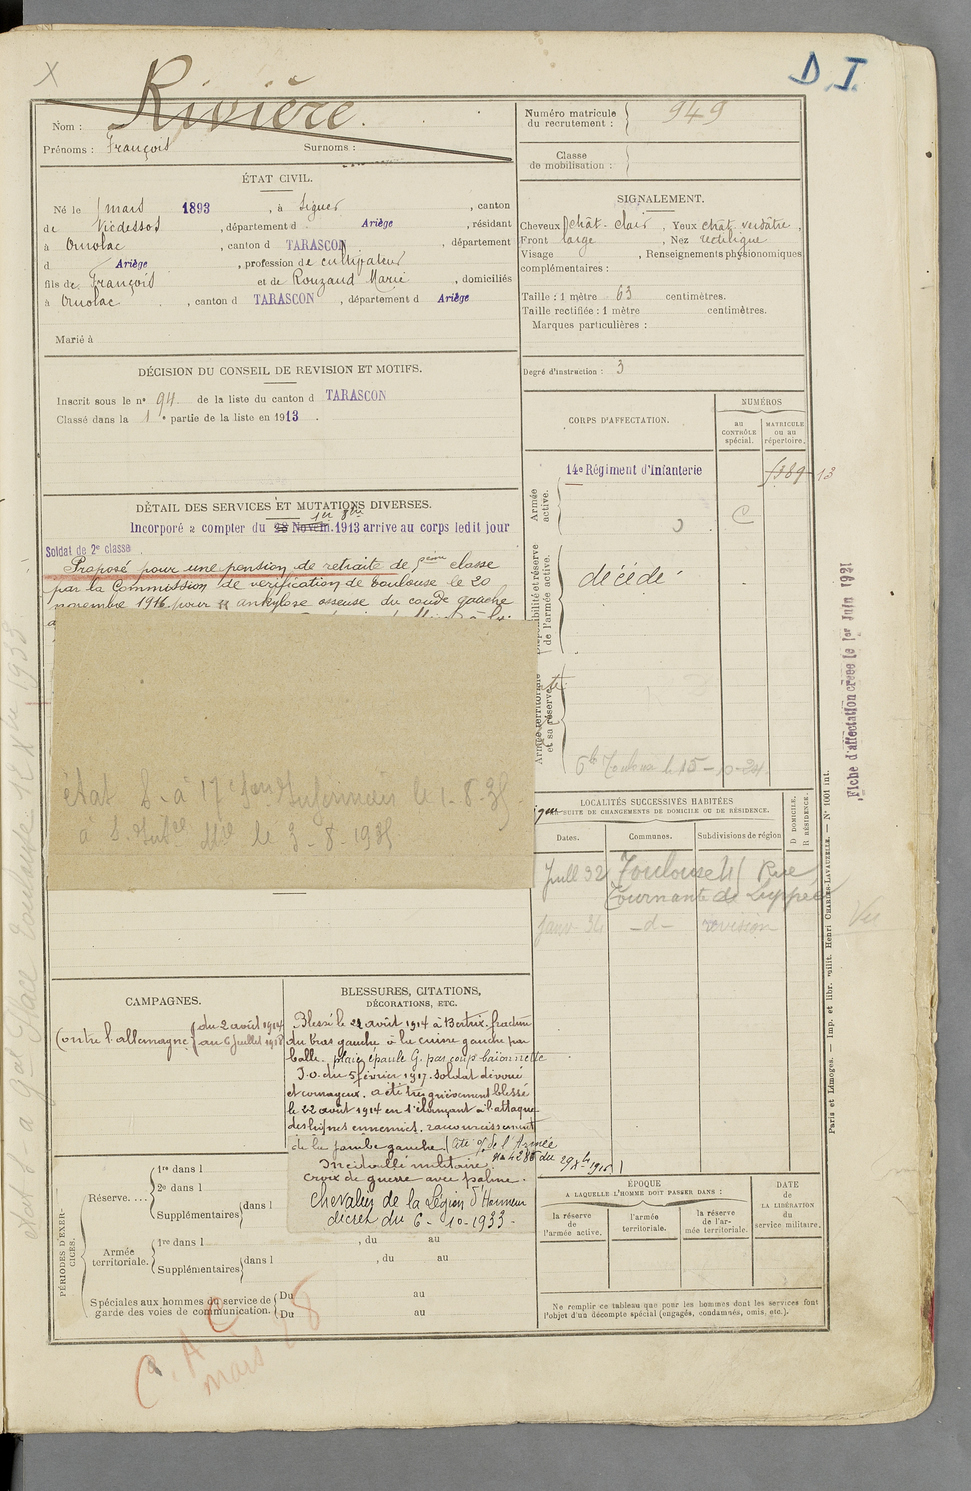 X
D.I.
Nom : Rivière
Prénoms : François Surnoms :
Numéro matricule du recrutement : 949
Classe de mobilisation :
ÉTAT CIVIL.
Né le 1 mars 1893, à Siguer, canton
de Vicdessos, département d Ariège, résidant
à Ornolac, canton d TARASCON, département
d Ariège, profession de cultivateur
fils de François et de Rouzaud Marie, domiciliés
à Ornolac, canton d TARASCON, département d Ariège
Marié à
SIGNALEMENT.
Cheveux chât-clair, Yeux chât. verdâtre,
Front large, Nez rectiligne
Visage , Renseignements physionomiques
complémentaires :
Taille : 1 mètre 63 centimètres.
Taille rectifiée : 1 mètre centimètres.
Marques particulières :
Degré d'instruction : 3
DÉCISION DU CONSEIL DE REVISION ET MOTIFS.
Inscrit sous le n° 94 de la liste du canton d TARASCON
Classé dans la 1e partie de la liste en 1913.
CORPS D'AFFECTATION.
NUMÉROS
au CONTRÔLE spécial.
MATRICULE ou au répertoire.
Armée active.
14e Régiment d'Infanterie
13
C
décédé
Armée territoriale et sa réserve.
15-10-24
DÉTAIL DES SERVICES ET MUTATIONS DIVERSES.
Incorporé à compter du 28 Novem. 1913 arrive au corps ledit jour
Soldat de 2e classe
Proposé pour une pension de retraite de 5eme classe
par la Commission de vérification de Toulouse le 20
novembre 1916 pour ankylose osseuse du coude gauche
état à 17e Son Infirmiers le 1-8-35
le 3-8-1935
Fiche d'affectation créée le 1er Juin 1931
LOCALITÉS SUCCESSIVES HABITÉES
PAR SUITE DE CHANGEMENTS DE DOMICILE OU DE RÉSIDENCE.
Dates. Communes. Subdivisions de région
D DOMICILE.
R RÉSIDENCE.
Juill 32 Toulouse 41 Rue
Tournante de Luppé
janv-34 -d- révision
Vu
Paris et Limoges. — Imp. et libr. milit. Henri CHARLES-LAVAUZELLE. — N° 1001 int.
CAMPAGNES.
Contre l'allemagne { du 2 août 1914
au 6 juillet 1918
BLESSURES, CITATIONS,
DÉCORATIONS, ETC.
Blessé le 22 août 1914 à Bertrix. fracture
du bras gauche à la cuisse gauche par
balle. plaie épaule G. par coup baïonnette
J.O. du 5 février 1917. Soldat dévoué
et courageux. a été très grièvement blessé
le 22 août 1914 en s'élançant à l'attaque
des lignes ennemies. raccourcissement
de la jambe gauche
Médaille militaire
Croix de guerre avec palme.
Chevalier de la Légion d'Honneur
décret du 6-10-1933.
PÉRIODES D'EXERCICES.
Réserve....
1re dans l
2e dans l
Supplémentaires dans l
Armée territoriale.
1re dans l , du au
Supplémentaires dans l , du au
Spéciales aux hommes du service de
garde des voies de communication.
Du au
Du au
ÉPOQUE
A LAQUELLE L'HOMME DOIT PASSER DANS :
la réserve de l'armée active.
l'armée territoriale.
la réserve de l'armée territoriale.
DATE de LA LIBÉRATION du service militaire.
Ne remplir ce tableau que pour les hommes dont les services font
l'objet d'un décompte spécial (engagés, condamnés, omis, etc.).
C.A.C
mars 18